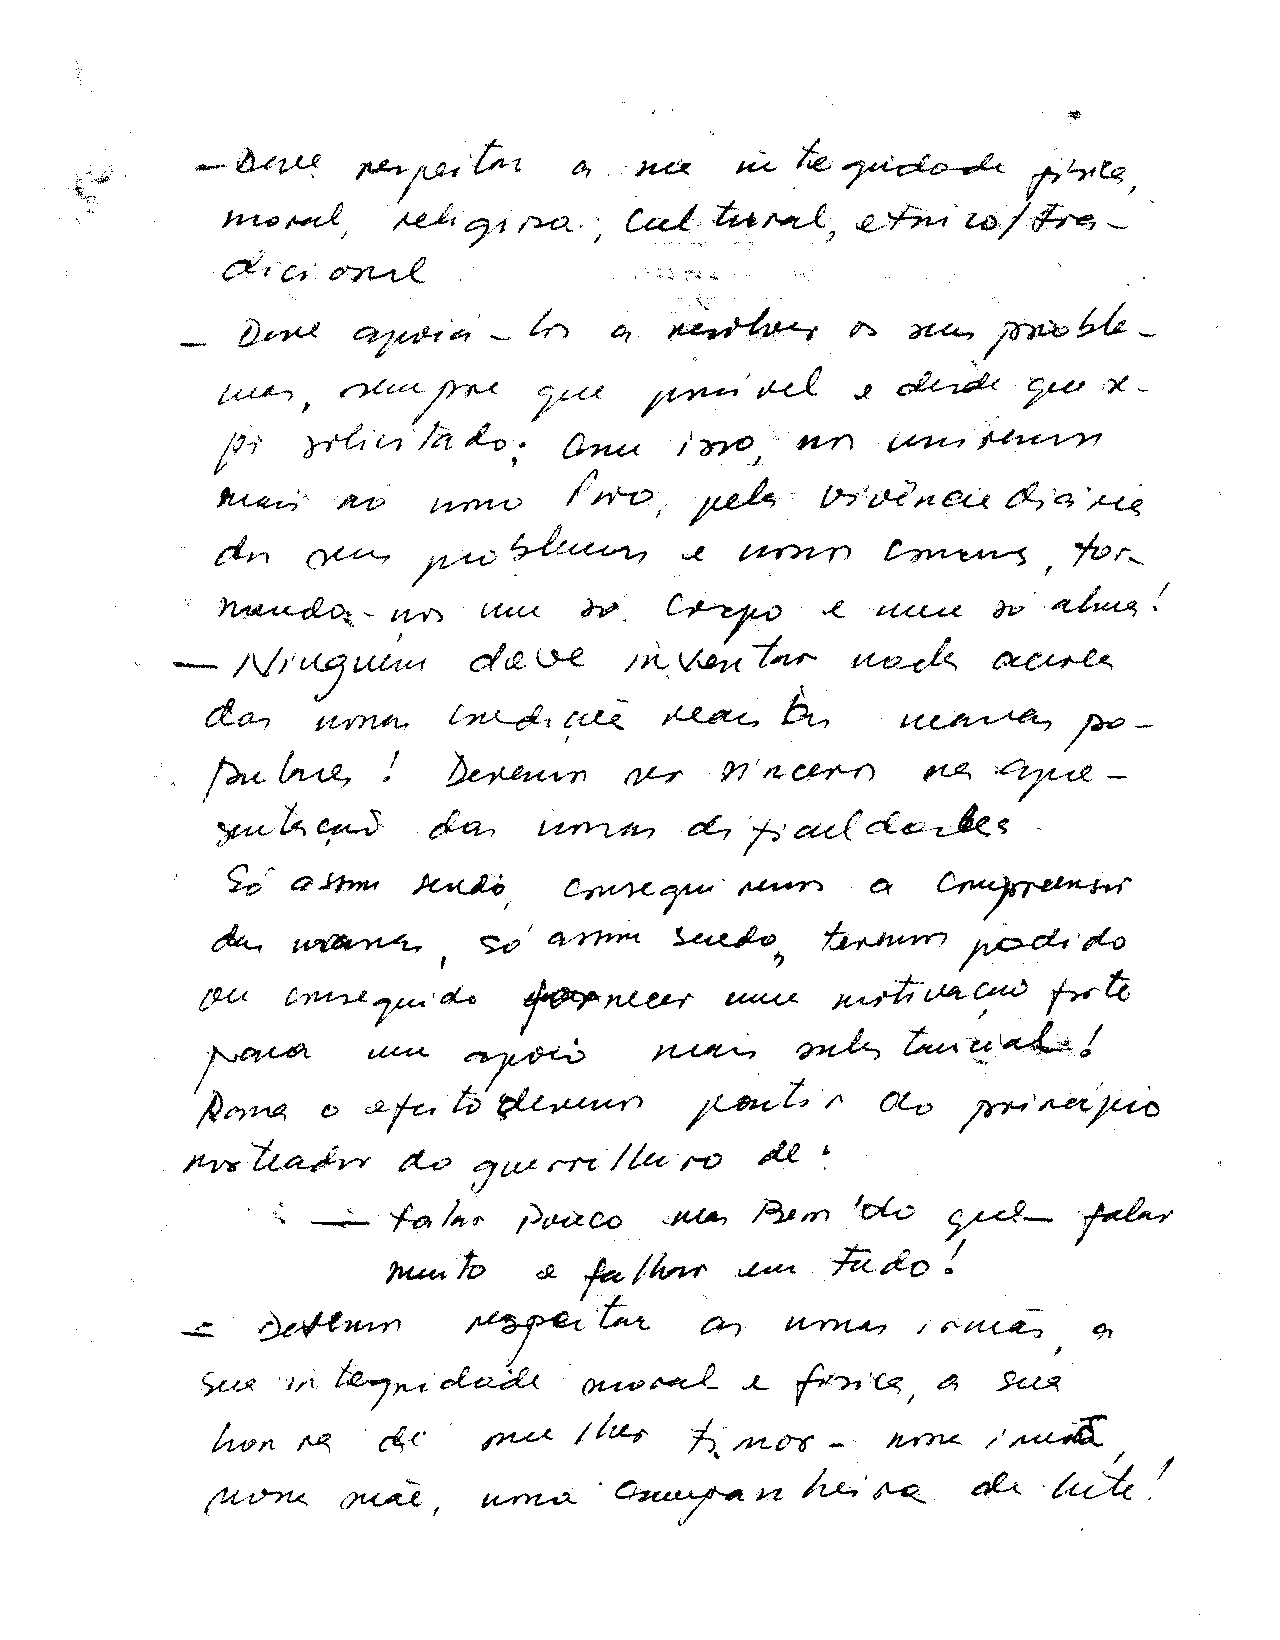 - Deve respeitar a sua integridade física,
moral, religiosa, cultural, etnico/tra-
dicional
- Deve apoiá-los a resolver os seus proble-
mas, sempre que possível e desde que se-
ja solicitado; com isso, nos uniremos
mais ao nosso Povo, pela vivência diária
dos seus problemas e nossos comuns, for-
mando-nos um só corpo e uma só alma!
- Ninguém deve inventar nada acerca
das nossas condições reais às massas po-
pulares! Devemos ser sinceros na apre-
sentação das nossas dificuldades
Só assim sendo, conseguiremos a compreensão
das massas, só assim sendo, teremos podido
ou conseguido fornecer uma motivação forte
para um apoio mais substancial!
Para o efeito devemos partir do princípio
norteador do guerrilheiro de:
- falar Pouco mas Bem do que falar
muito e falhar em tudo!
- Devemos respeitar as nossas irmãs, a
sua integridade moral e física, a sua
honra de mulher timor - nossa irmã,
nossa mãe, nossa companheira de luta!